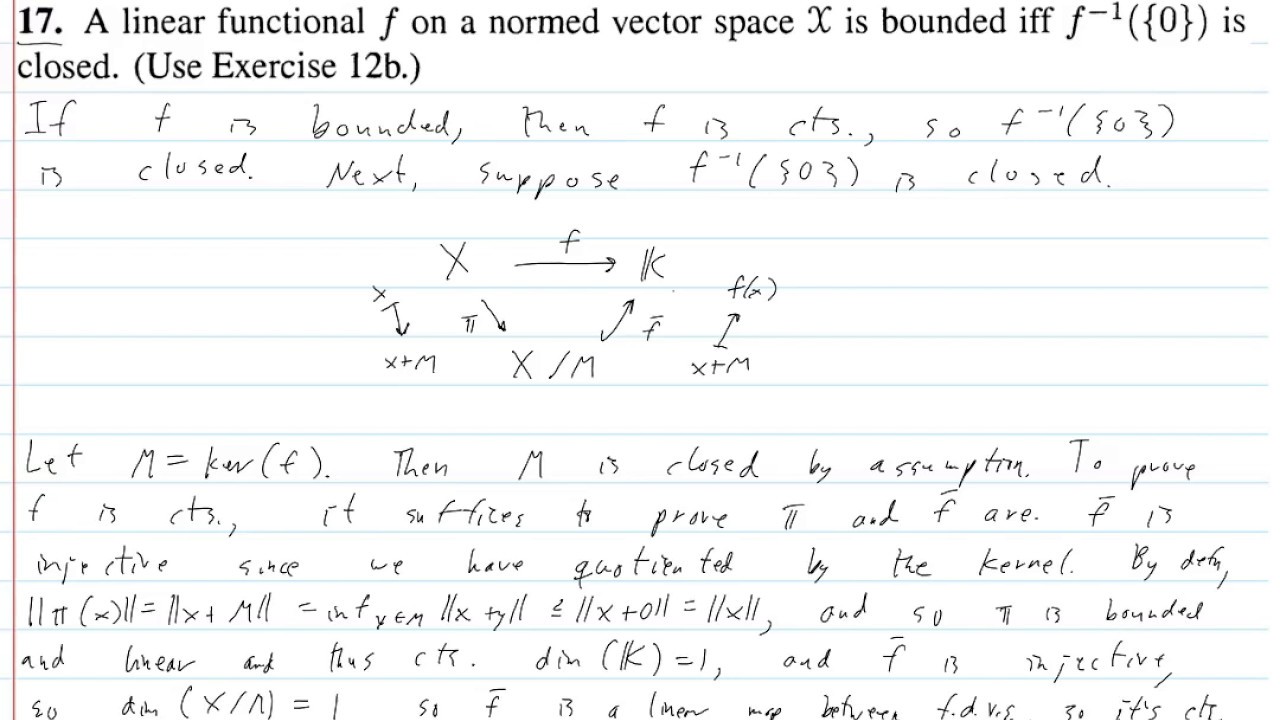 17. A linear functional f on a normed vector space X is bounded iff f⁻¹({0}) is
closed. (Use Exercise 12b.)
If f is bounded, then f is cts., so f⁻¹({0})
is closed. Next, suppose f⁻¹({0}) is closed.
X f→ K
x f(x)
↧ π ↘ ↗ f̄ ↥
x+M X/M x+M
Let M = ker(f). Then M is closed by assumption. To prove
f is cts., it suffices to prove π and f̄ are. f̄ is
injective since we have quotiented by the kernel. By defn,
||π(x)|| = ||x+M|| = inf y∈M ||x+y|| ≤ ||x+0|| = ||x||, and so π is bounded
and linear and thus cts. dim(K)=1, and f̄ is injective,
so dim(X/M) = 1 so f̄ is a linear map between f.d.v.s. so it's cts.